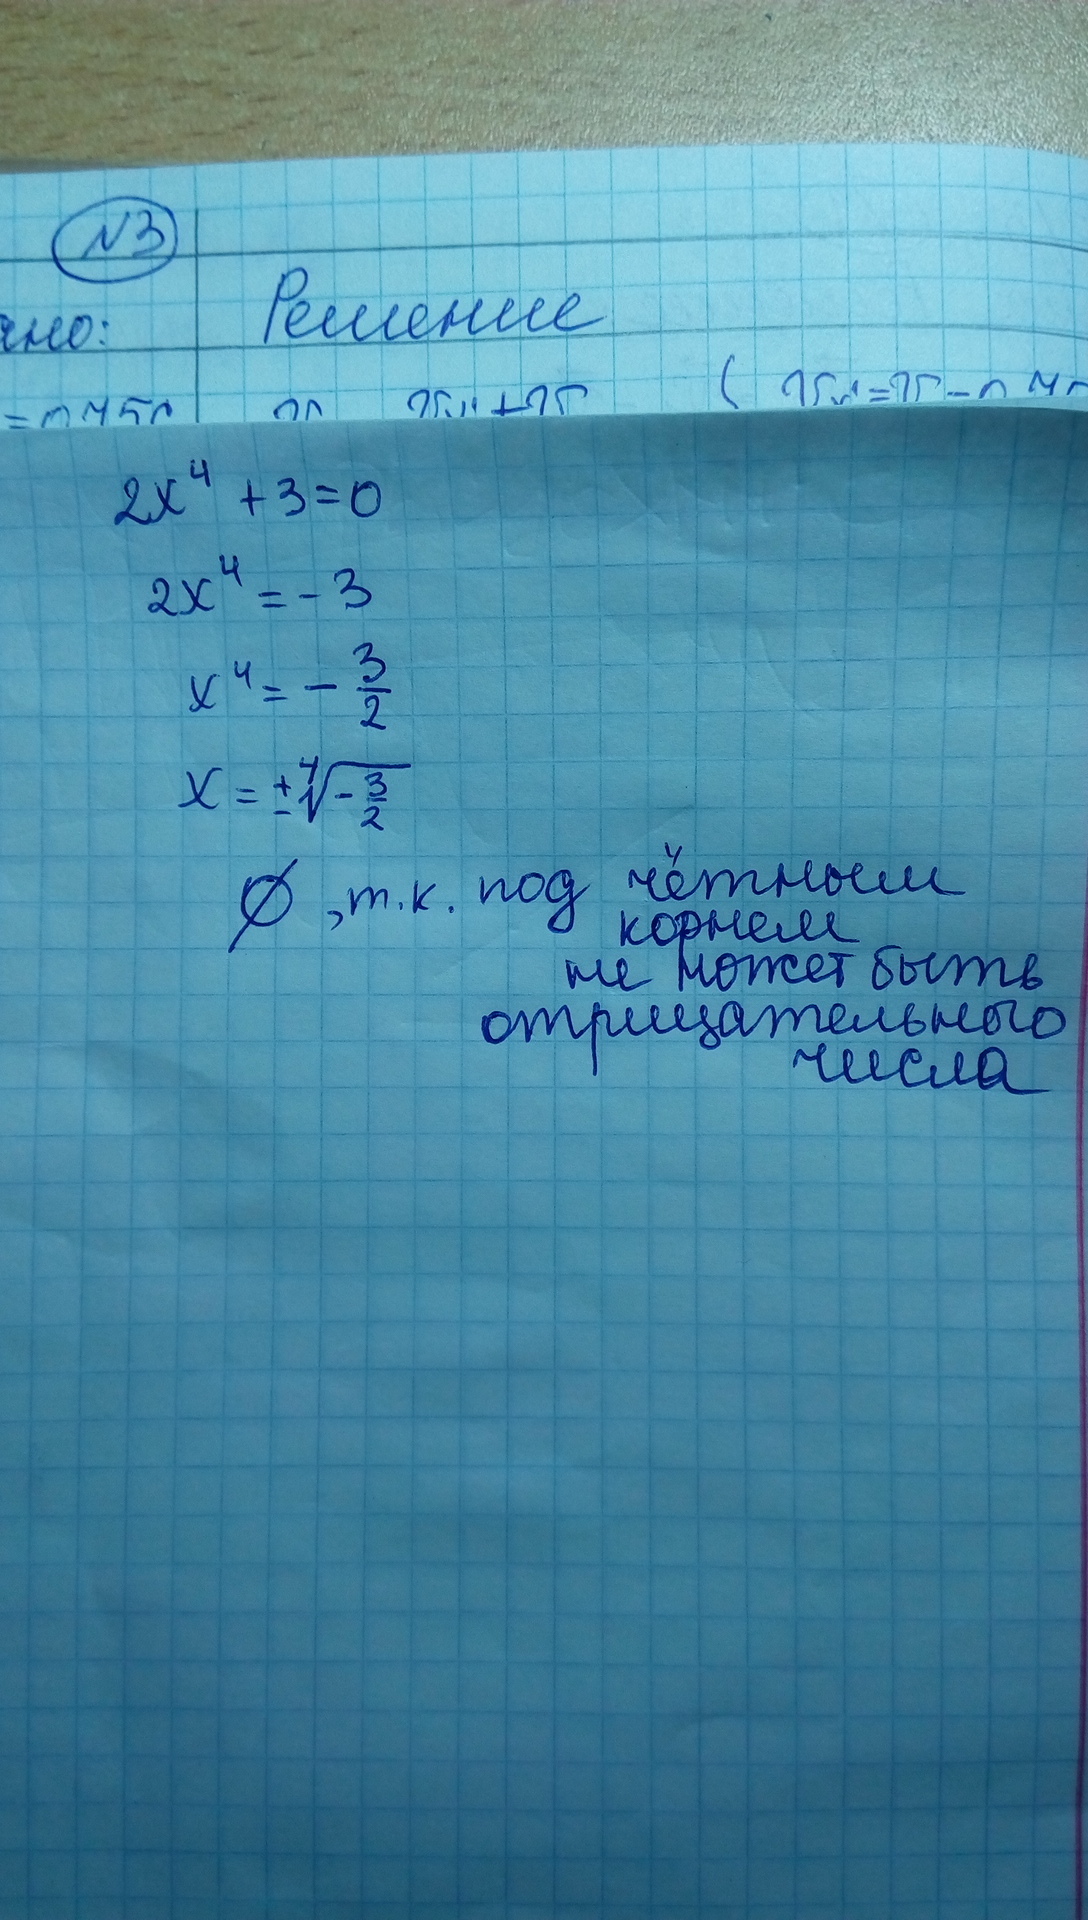 N3
Решение
2x⁴ + 3 = 0
2x⁴ = - 3
x⁴ = - 3/2
x = ± ⁴√(- 3/2)
∅, т.к. под чётным
корнем
не может быть
отрицательного
числа